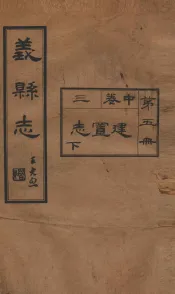 義縣志
第五冊
中卷
三
建置志
下